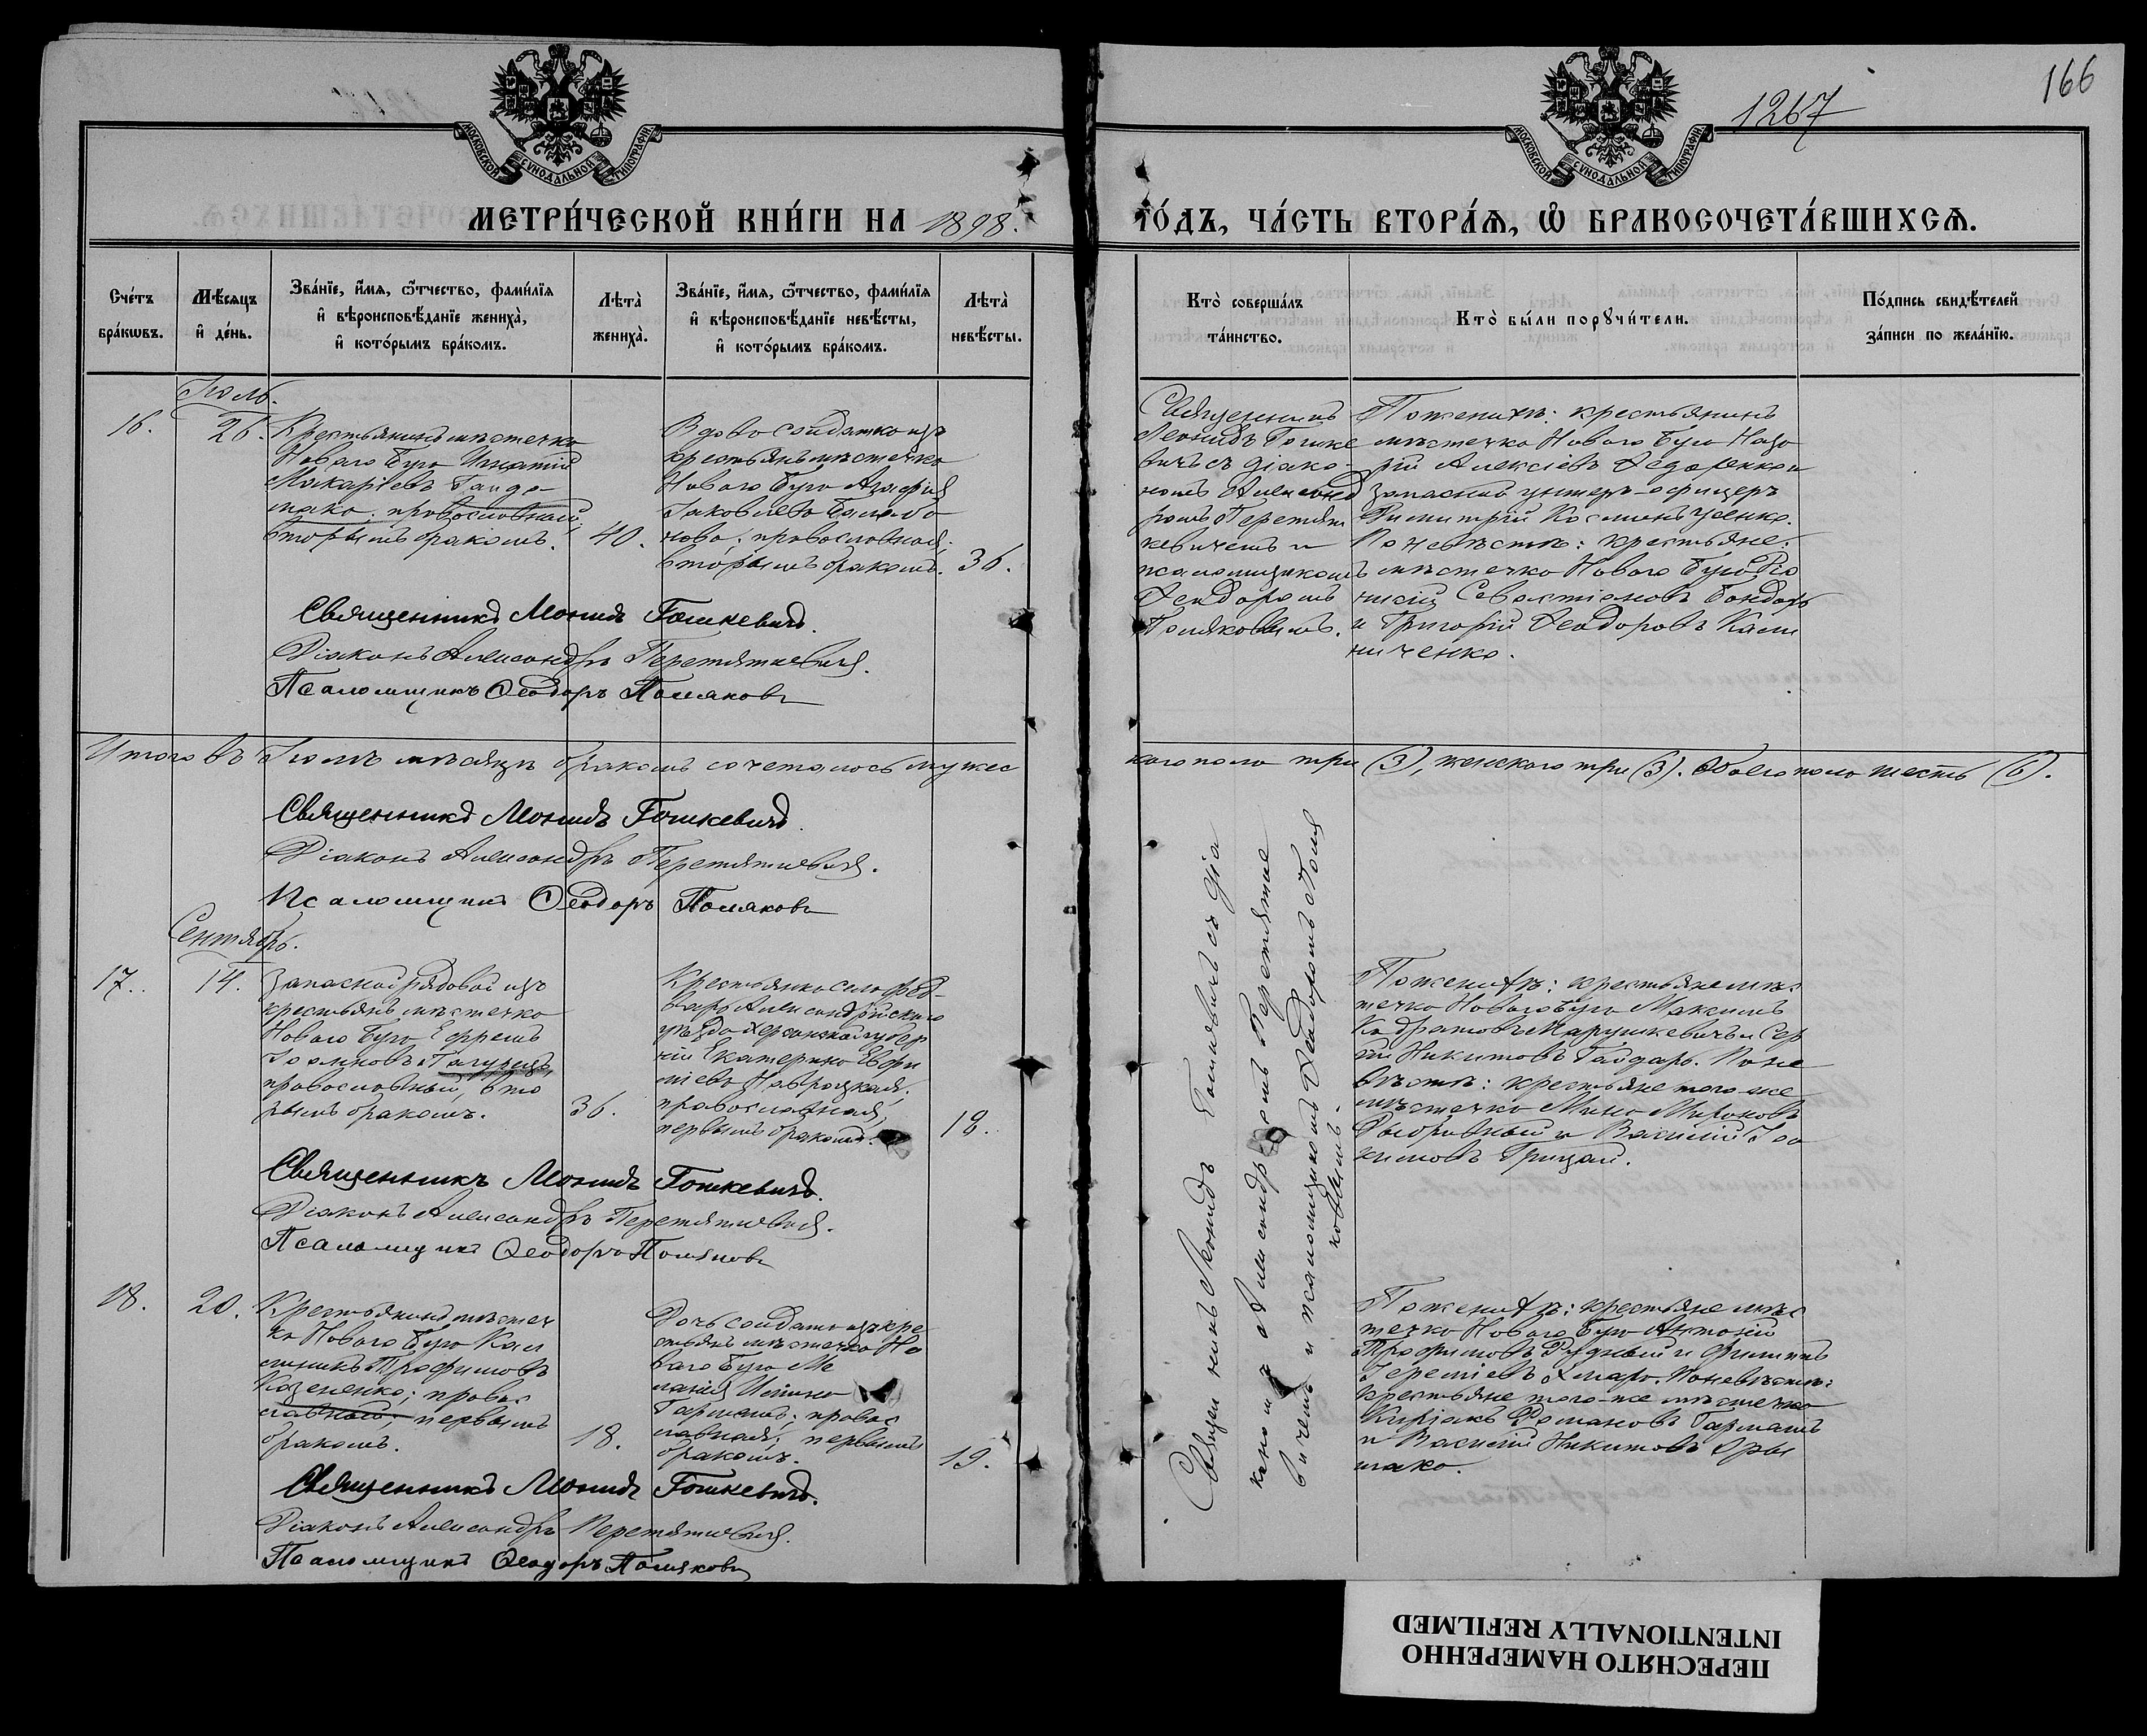 166
1267
МОСКОВСКОЙ СѴНОДАЛЬНОЙ ТИПОГРАФІИ
МОСКОВСКОЙ СѴНОДАЛЬНОЙ ТИПОГРАФІИ
МЕТРИ́ЧЕСКОЙ КНИ́ГИ НА 1898.
ГО́ДЪ, ЧА́СТЬ ВТОРА́Ѧ, Ѽ БРАКОСОЧЕТА́ВШИХСѦ.
Сче́тъ
бра́кѡвъ.
Мѣ́сяцъ
и҆ де́нь.
Зва́нїе, и҆́мя, ѻ҆́тчество, фами́лїя
и҆ вѣроисповѣ́данїе жениха̀,
и҆ кото́рымъ бра́комъ.
Лѣта̀
жениха̀.
Зва́нїе, и҆́мя, ѻ҆́тчество, фами́лїя
и҆ вѣроисповѣ́данїе невѣ́сты,
и҆ кото́рымъ бра́комъ.
Лѣта̀
невѣ́сты.
Кто̀ соверша́лъ
та́инство.
Кто̀ бы́ли порꙋчи́тели.
По́дпись свидѣ́телей
за́писи по жела́нїю.
Іюль.
16.
26.
Крестьянинъ мѣстечка
Новаго Буга Игнатій
Макаріевъ
православный,
вторымъ бракомъ.
40.
Вдова солдатка изъ
крестьянъ мѣстечка
Новаго Буга Агафія
Іаковлева Балабо
нова; православная,
вторымъ бракомъ.
36.
Священникъ
Леонидъ Гошке
вичъ съ діако-
номъ Александ
ромъ Перетят
кевичемъ и
псаломщикомъ
Ѳеодоромъ
Поляковымъ.
По женихѣ: крестьянинъ
мѣстечка Новаго Буга Наза
рій Алексіевъ Ѳедоренко и
запасный унтеръ-офицеръ
Димитрій Косминъ Усенко.
По невѣстѣ: крестьяне:
мѣстечка Новаго Буга Діо
нисій Севастіановъ Бондарь
и Григорій Ѳеодоровъ Кали
ниченко.
Священникъ Леонидъ Гошкевичъ.
Діаконъ Александръ Перетяткевичъ.
Псаломщикъ Ѳеодоръ Поляковъ
Итого въ Іюлѣ мѣсяцѣ бракомъ сочеталось мужес
каго пола три (3), женскаго три (3). Обоего пола шесть (6).
Священникъ Леонидъ Гошкевичъ.
Діаконъ Александръ Перетяткевичъ.
Псаломщикъ Ѳеодоръ Поляковъ
Сентябрь.
17.
14.
Запасной рядовой изъ
крестьянъ мѣстечка
Новаго Буга Ефремъ
Іоанновъ
православный, вто
рымъ бракомъ.
36.
Крестьянка села
Александрійскаго
уѣзда Херсонской губер
ніи Екатерина Евфи
міева Навроцкая,
православная,
первымъ бракомъ.
18.
Священникъ Леонидъ Гошкевичъ съ діа
кономъ Александромъ Перетятке
вичемъ и псаломщикомъ Ѳеодоромъ Поля
ковымъ.
По женихѣ: крестьяне мѣс
течка Новаго Буга Максимъ
Кодратовъ Марушкевичъ и Сер
гій Никитовъ Гайдарь. По не
вѣстѣ: крестьяне того же
мѣстечка Мина Мироновъ
и Василій Іоа
кимовъ Грицай.
Священникъ Леонидъ Гошкевичъ.
Діаконъ Александръ Перетяткевичъ.
Псаломщикъ Ѳеодоръ Поляковъ
18.
20.
Крестьянинъ мѣстеч
ка Новаго Буга Кал
линикъ Трофимовъ
Козененко; правос
лавнаго, первымъ
бракомъ.
18.
Дочь солдата изъ кре
стьянъ мѣстечка Но
ваго Буга Ме
ланія
Гармашъ; правос
лавная; первымъ
бракомъ.
19.
По женихѣ: крестьяне мѣс
течка Новаго Буга Антоній
Трофимовъ Рудный и Филиппъ
Іереміевъ Хмара. По невѣстѣ:
крестьяне того-же мѣстечка
Киріакъ Романовъ Гармашъ
и Василій Никитовъ
Священникъ Леонидъ Гошкевичъ.
Діаконъ Александръ Перетяткевичъ.
Псаломщикъ Ѳеодоръ Поляковъ
ПЕРЕСНЯТО НАМЕРЕННО
INTENTIONALLY REFILMED